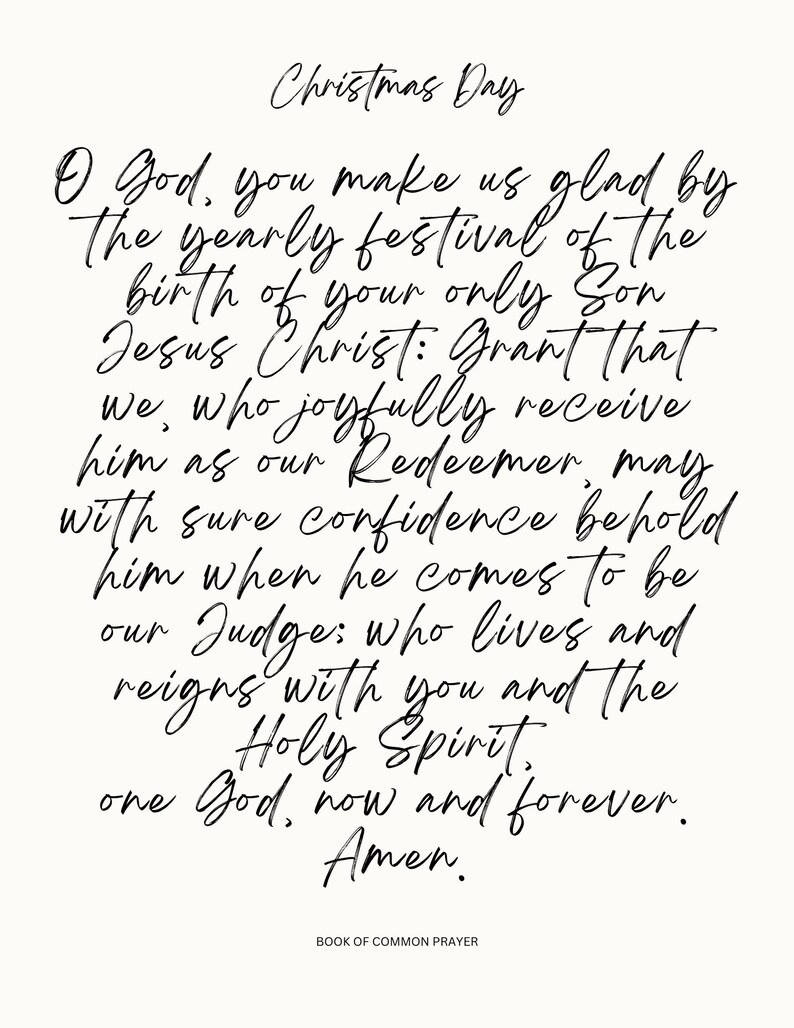 Christmas Day
O God, you make us glad by
the yearly festival of the
birth of your only Son
Jesus Christ: Grant that
we, who joyfully receive
him as our Redeemer, may
with sure confidence behold
him when he comes to be
our Judge; who lives and
reigns with you and the
Holy Spirit,
one God, now and forever.
Amen.
BOOK OF COMMON PRAYER